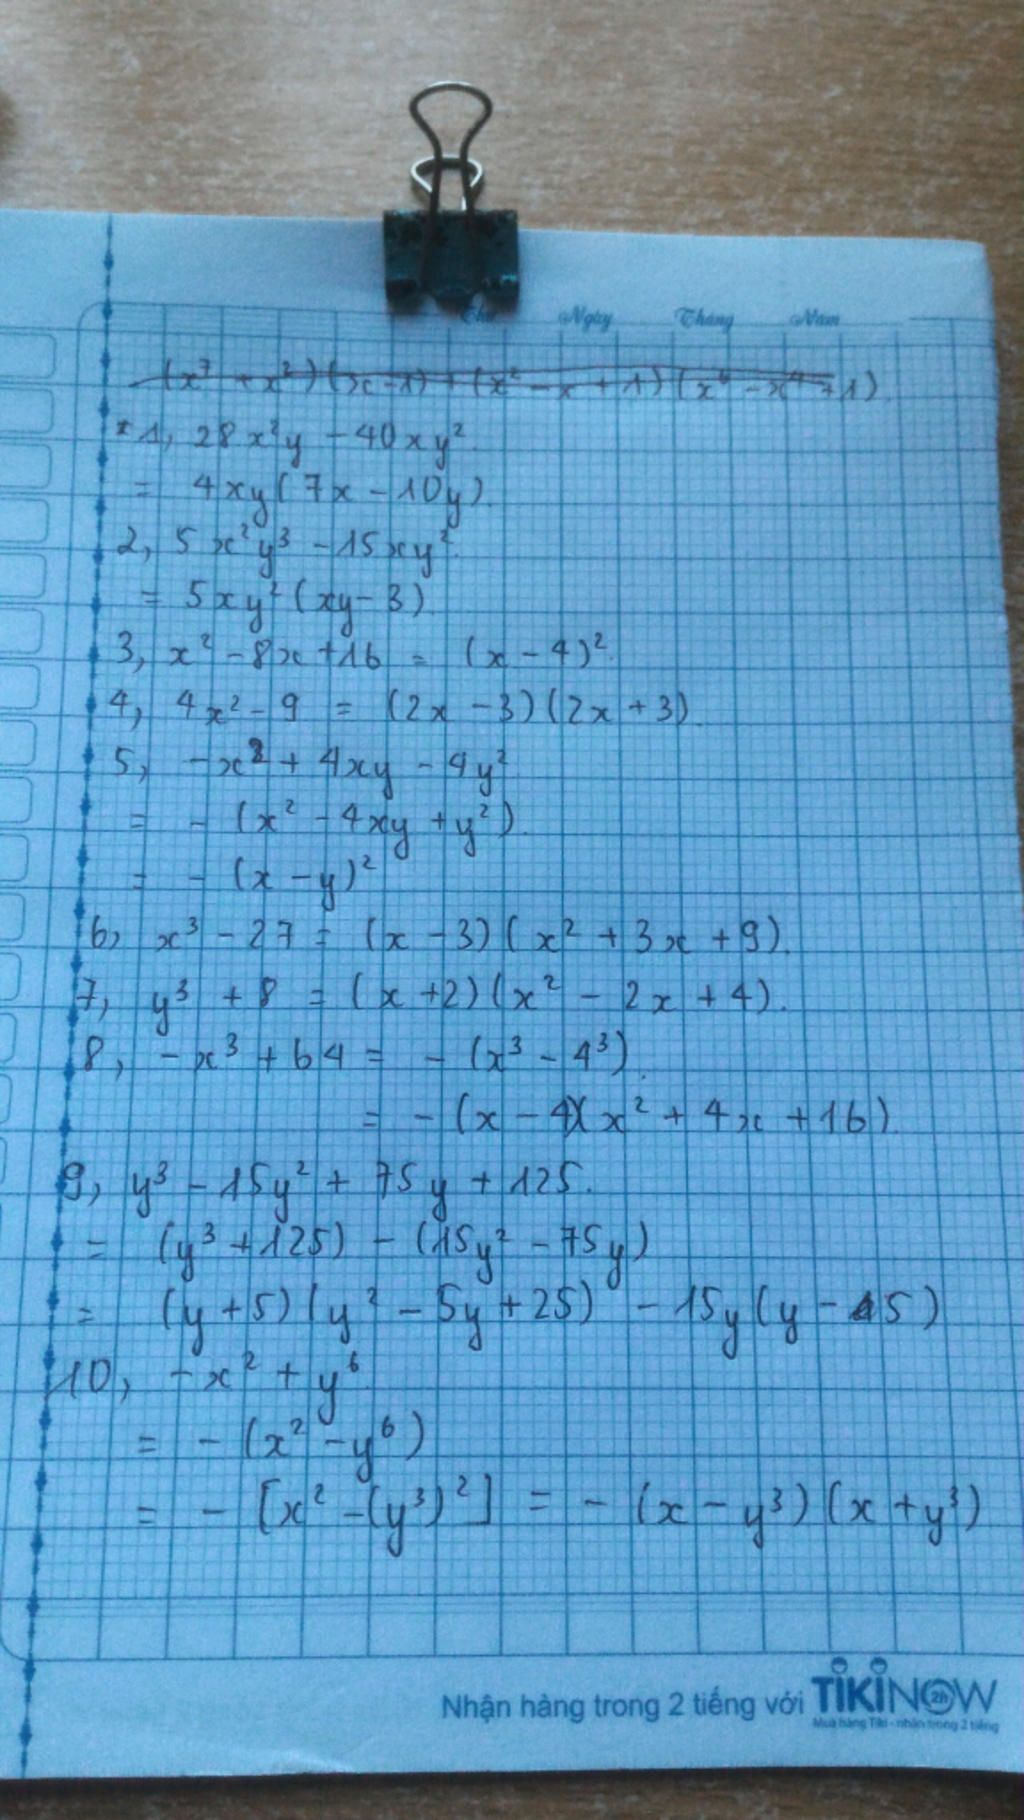 Thứ Ngày Tháng Năm
(x⁷ + x²)(x - 1) + (x² - x + 1)(x⁶ - x⁴ + 1)
* 1, 28x²y - 40xy².
= 4xy(7x - 10y).
2, 5x²y³ - 15xy².
= 5xy²(xy - 3).
3, x² - 8x + 16 = (x - 4)².
4, 4x² - 9 = (2x - 3)(2x + 3).
5, -x² + 4xy - 4y²
= - (x² - 4xy + y²).
= - (x - y)²
6, x³ - 27 = (x - 3)(x² + 3x + 9).
7, y³ + 8 = (x + 2)(x² - 2x + 4).
8, -x³ + 64 = - (x³ - 4³).
= - (x - 4)(x² + 4x + 16).
9, y³ - 15y² + 75y + 125.
= (y³ + 125) - (15y² - 75y)
= (y + 5)(y² - 5y + 25) - 15y(y - 5)
10, -x² + y⁶
= - (x² - y⁶)
= - [x² - (y³)²] = - (x - y³)(x + y³)
Nhận hàng trong 2 tiếng với TIKINOW 2h
Mua hàng Tiki - nhận trong 2 tiếng